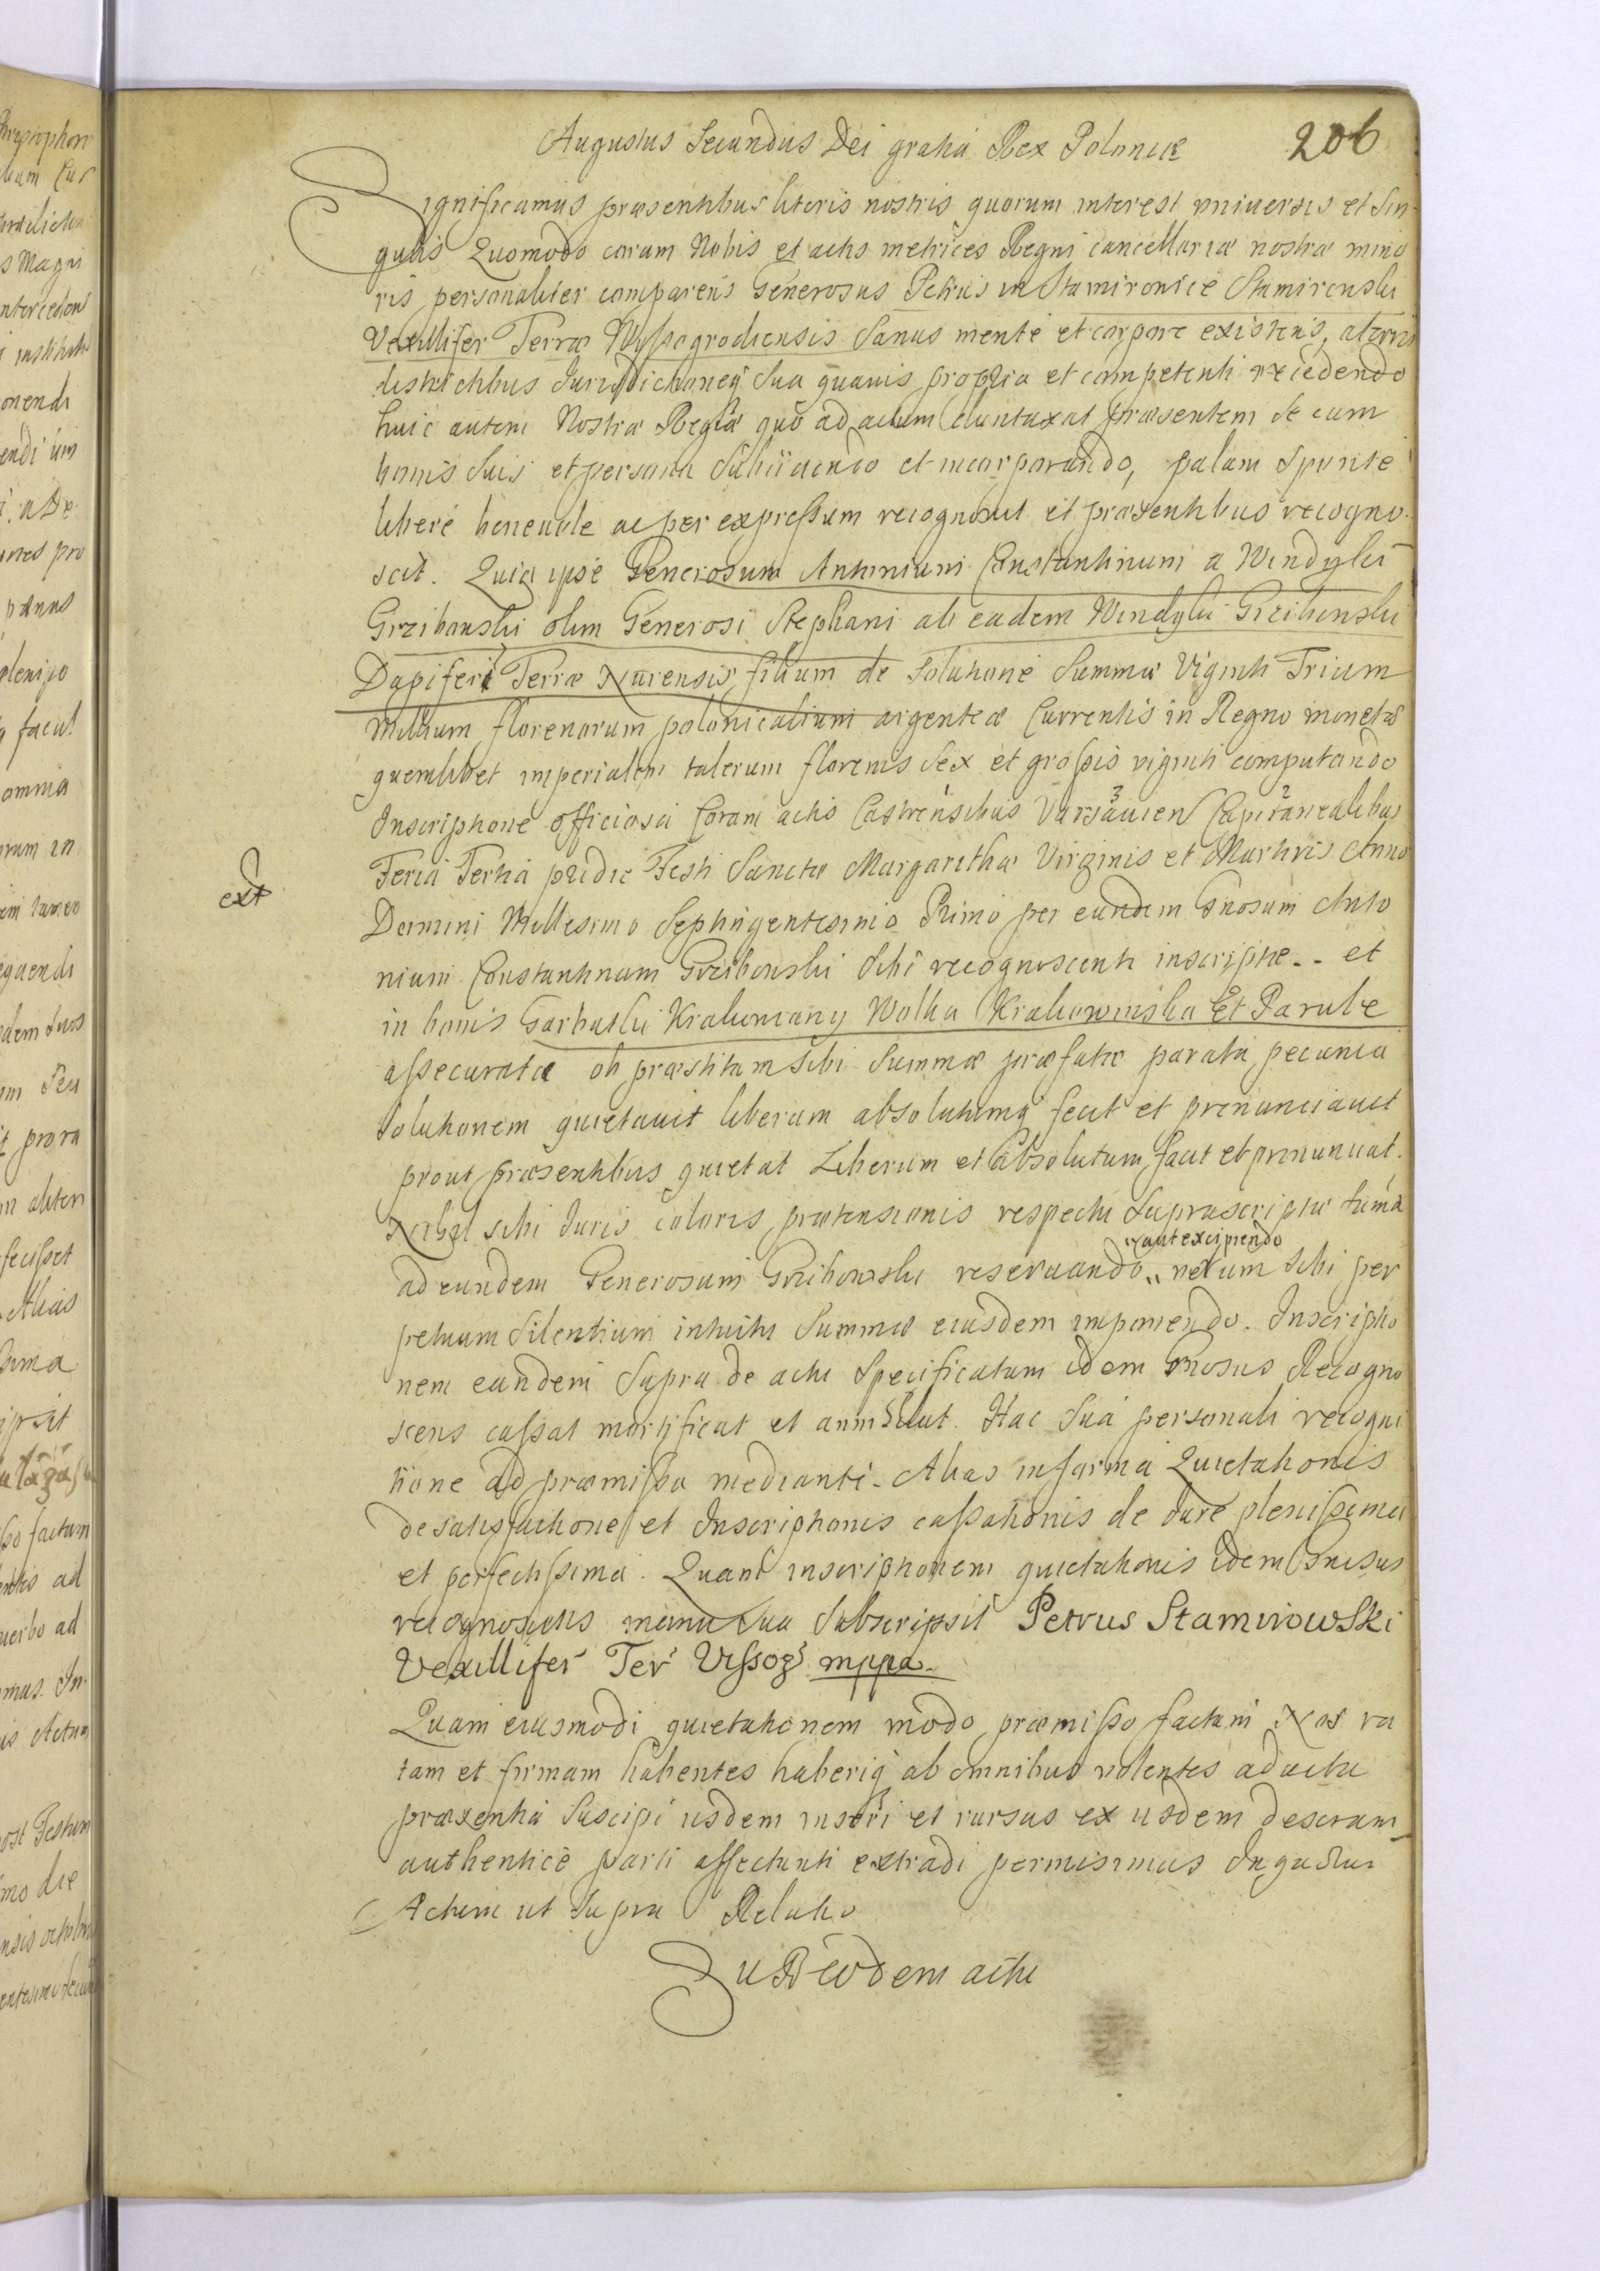 Augustus Secundus Dei gratia Rex Poloniæ 206
Significamus præsentibus literis nostris quorum interest universis et Sin-
gulis Quomodo coram Nobis et actis metrices Regni cancellariæ nostræ mino
ris personaliter comparens Generosus Petrus in Stamirowice Stamirowski
Vexillifer Terræ Wyssogrodiensis Sanus mente et corpore existens, a terris
districtibus Jurisdictioneq sua quavis propria et competenti recedendo
huic autem Nostræ Regiæ quo ad actum duntaxat præsentem Se cum
bonis Suis et persona Subiiciendo et incorporando, palam Sponte
libere benevole ac per expressum recognovit et præsentibus recogno-
scit. Quia ipse Generosum Antonium Constantinum a Windyki
Grzibowski olim Generosi Stephani ab eadem Windyki Grzibowski
Dapiferi Terræ Nurensis filium de Solutione Summæ Viginti Trium
Millium florenorum polonicalium argenteæ Currentis in Regno monetæ
quemlibet imperialem talerum florenis Sex et grossis viginti computando
Inscriptione officiosa Coram actis Castrensibus Varsavien Capitanealibus
3 2
Feria Tertia pridie Festi Sanctæ Margarithæ Virginis et Martiris Anno
ext
Domini Millesimo Septingentesimo Primo per eundem Gnosum Anto
nium Constantinum Grzibowski Sibi recognoscenti inscriptæ -- et
in bonis Garbaski Krakowiany Wolka Krakowinska Et Parule
assecuratæ ob præstitam sibi Summæ præfatæ parata pecunia
Solutionem quietavit liberum absolutumq fecit et pronunciavit
prout præsentibus quietat Liberum et absolutum facit et pronunciat.
Nihil sibi Juris coloris prætensionis respectu Supræscriptæ sumæ
aut excipiendo
ad eundem Generosum Grzibowski reservando verum Sibi per
petuum Silentium intuitu Summæ eiusdem imponendo. Inscriptio
nem eandem Supra de actu Specificatam idem Gnosus Recogno
scens cassat mortificat et annihilat. Hac Sua personali recogni
tione ad præmissa mediante. Alias in forma Quietationis
de satisfactione et Inscriptionis cassationis de Jure plenissima
et perfectissima. Quam inscriptionem quietationis idem Gnosus
recognoscens manu Sua Subscripsit Petrus Stamirowski
Vexillifer Ter Vissog mppa.
Quam eiusmodi quietationem modo præmisso factam Nos ra
tam et firmam habentes haberiq ab omnibus volentes ad acta
præsentia Suscipi iisdem inseri et rursus ex iisdem descram
authentice parti affectanti extradi permisimus In quorum
Actum ut Supra Relatio
Sub eodem actu